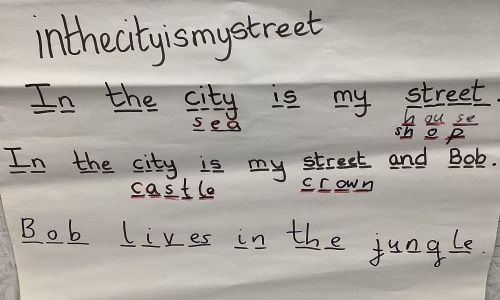 inthecityismystreet
In the city is my street.
sea house
shop
In the city is my street and Bob.
castle crown
Bob lives in the jungle.